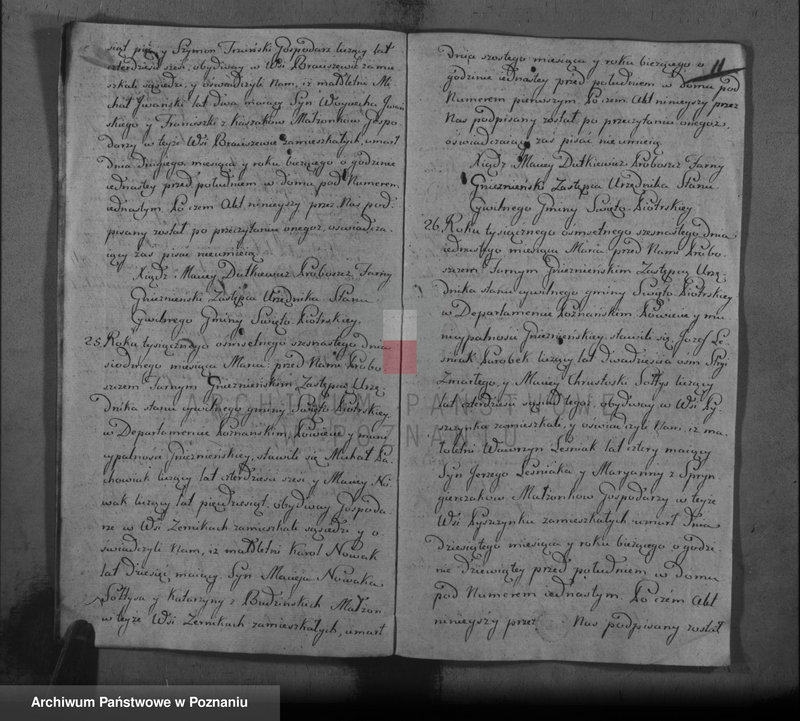 siąt pięć y Szymon Trzciński Gospodarz liczący lat
czterdzieści sześć, obydwey w Wsi Braciszewie zamie
szkali sąsiedzi, y oświadczyli Nam, iż małoletni Mi
chał Jwański lat dwa maiący Syn Woyciecha Jwań
skiego y Franciszki z Małżonków Gospo
darzy w teyże Wsi Braciszewie zamieszkałych, umarł
dnia drugiego miesiąca y roku bieżącego o godzinie
iednastey przed południem w domu pod Numerem
iednastym. Po czem Akt ninieyszy przez Nas pod
pisany został po przeczytaniu onegoż, oświadcza
iący zaś pisać nieumieią
Xiądz Maciey Dutkiewicz Proboszcz Farny
Gnieznieński Zastępca Urzędnika Stanu
Cywilnego Gminy Święto Piotrskiey.
25. Roku tysiącznego ośmsetnego szesnastego dnia
siódmego miesiąca Marca przed Nami Probo
szczem Farnym Gnieznieńskim Zastępcą Urzę
dnika stanu cywilnego gminy Święto Piotrskiey
w Departamencie Poznańskim Powiecie y muni
cypalności Gnieznieńskiey, stawili się Michał Ła
chowiak liczący lat czterdzieści sześć y Maciey No
wak liczący lat piędziesiąt, obydway Gospoda
rze w Wsi Zernikach zamieszkali sąsiedzi y o
świadczyli Nam, iż małoletni Karol Nowak
lat dziesięć maiący, Syn Macieja Nowaka
Sołtysa y Katarzyny z Budzińskich Małżon
w teyże Wsi Zernikach zamieszkałych, umarł
11
dnia szóstego miesiąca y roku bieżącego o
godzinie iednastey przed południem w domu pod
Numerem pierwszym. Po czem Akt ninieyszy przez
Nas podpisany został po przeczytaniu onegoż,
oświadczaiący zaś pisać nieumieią
Xiądz Maciey Dutkiewicz Proboszcz Farny
Gnieznieński Zastępca Urzędnika Stanu
Cywilnego Gminy Święto Piotrskiey
26. Roku tysiącznego ośmsetnego szesnastego dnia
iednastego miesiąca Marca przed Nami Probo
szczem Farnym Gnieznieńskim Zastępcą Urzę
dnika stanu cywilnego gminy Święto Piotrskiey
w Departamencie Poznańskim Powiecie y mu
nicypalności Gnieznieńskiey, stawili się Jozef Le
śniak Parobek liczący lat dwadzieścia ośm Stryi
Zmarłego, y Maciey Chrustoski Sołtys liczący
lat czterdzieści sąsiad tegoż obydway w Wsi Py
szczynku zamieszkali, y oświadczyli Nam, iż ma
łoletni Wawrzyn Leśniak lat cztery maiący
Syn Jerzego Leśniaka y Maryanny z Spryn
gierczaków Małżonków Gospodarzy w teyże
Wsi Pyszczynku zamieszkałych umarł Dnia
Dziesiątego miesiąca y roku bieżącego o godzi
nie dziewiątey przed południem w domu
pod Numerem iednastym. Po czem Akt
ninieyszy przez Nas podpisany został
ARCHIWUM PAŃSTWOWE
W POZNANIU
Archiwum Państwowe w Poznaniu